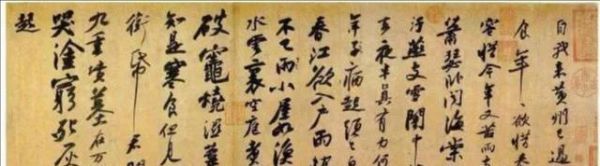 自我來黃州已過
食年〻欲惜春
容惜今年又苦雨
蕭瑟臥聞海棠
汙燕支雪闇中
去夜半真有力何
年子病起須已
春江欲入戶雨勢
不已雨小屋如漁
水雲裏空庖煮
破竈燒濕葦
知是寒食但見
銜帋君門
九重墳墓在万
哭塗窮死灰
起